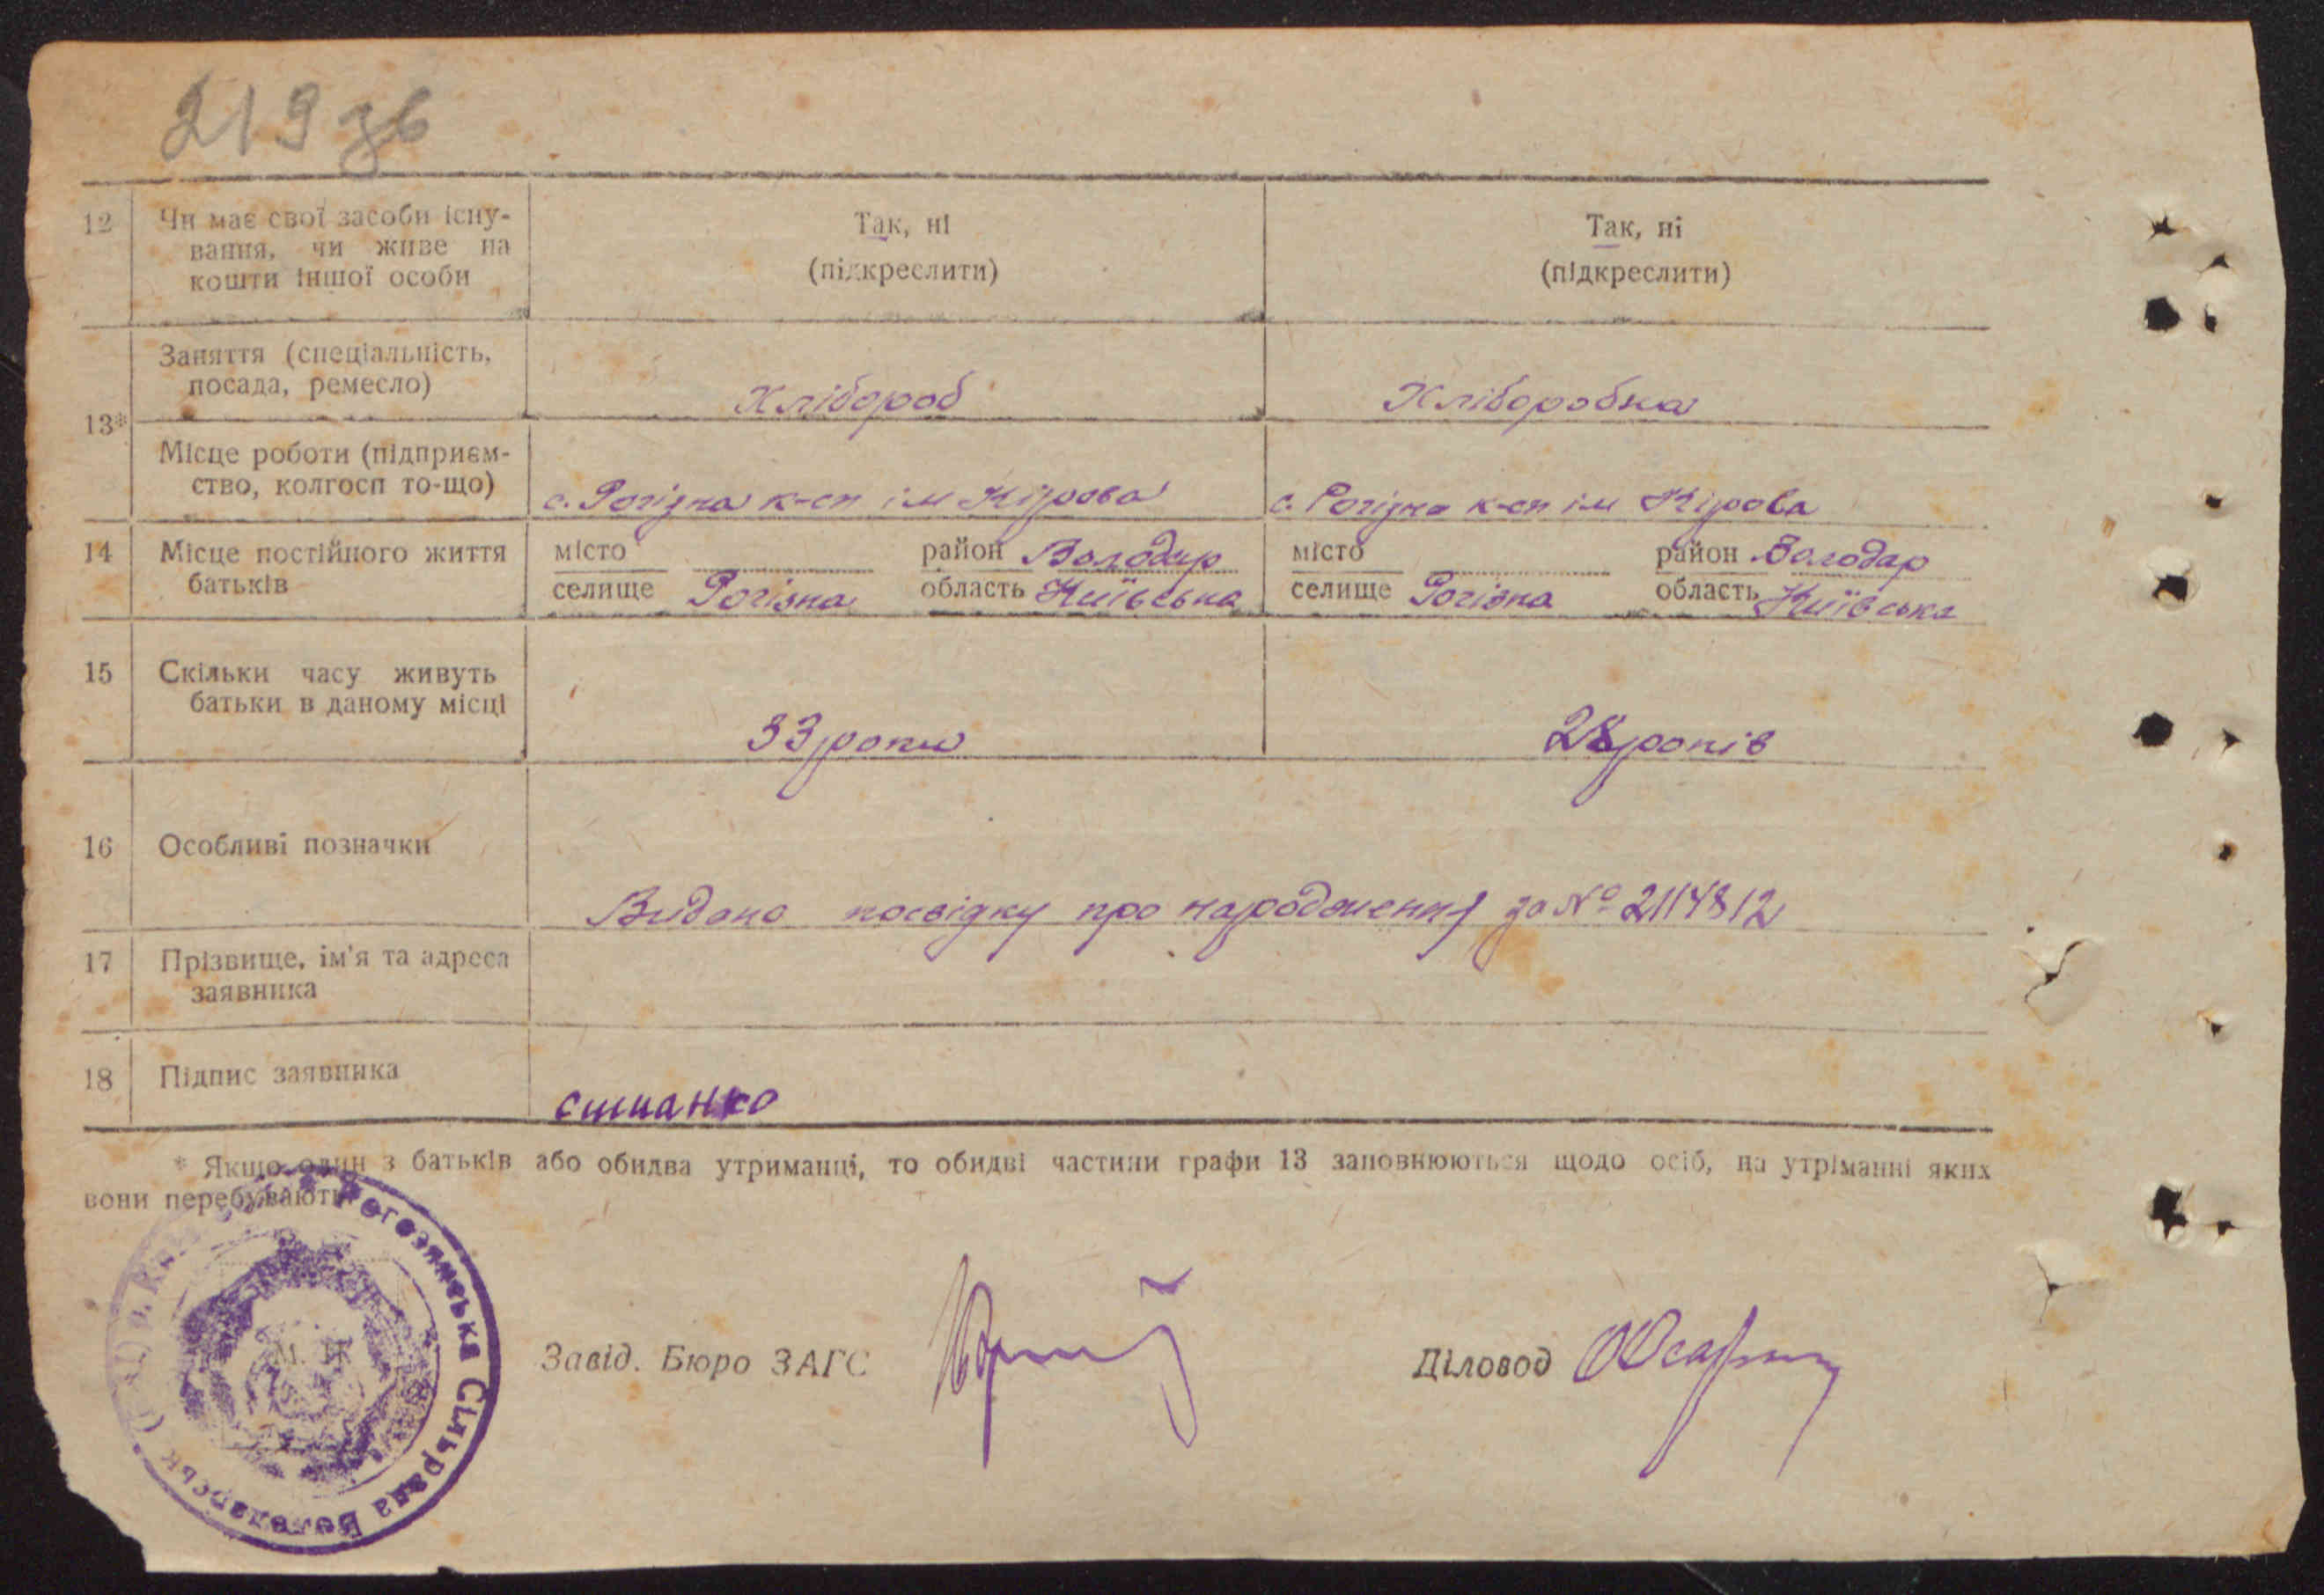 219 зв
12 Чи має свої засоби існу- Так, ні Так, ні
вання, чи живе на
кошти іншої особи (підкреслити) (підкреслити)
Заняття (спеціальність,
посада, ремесло) Хлібороб Хліборобка
13*
Місце роботи (підприєм-
ство, колгосп то-що) с. Рогізна к-сп ім Кірова с. Рогізна к-сп ім Кірова
14 Місце постійного життя місто район Володар місто район Володар
батьків селище Рогізна область Київська селище Рогізна область Київська
15 Скільки часу живуть
батьки в даному місці 33 роки 28 років
16 Особливі позначки
Видано посвідку про народження за № 2114812
17 Прізвище, ім'я та адреса
заявника
18 Підпис заявника
* Якщо один з батьків або обидва утриманці, то обидві частини графи 13 заповнюються щодо осіб, на утріманні яких
вони перебувають
Рогознянська Сільрада Володарськ
М. П.
Завід. Бюро ЗАГС Діловод